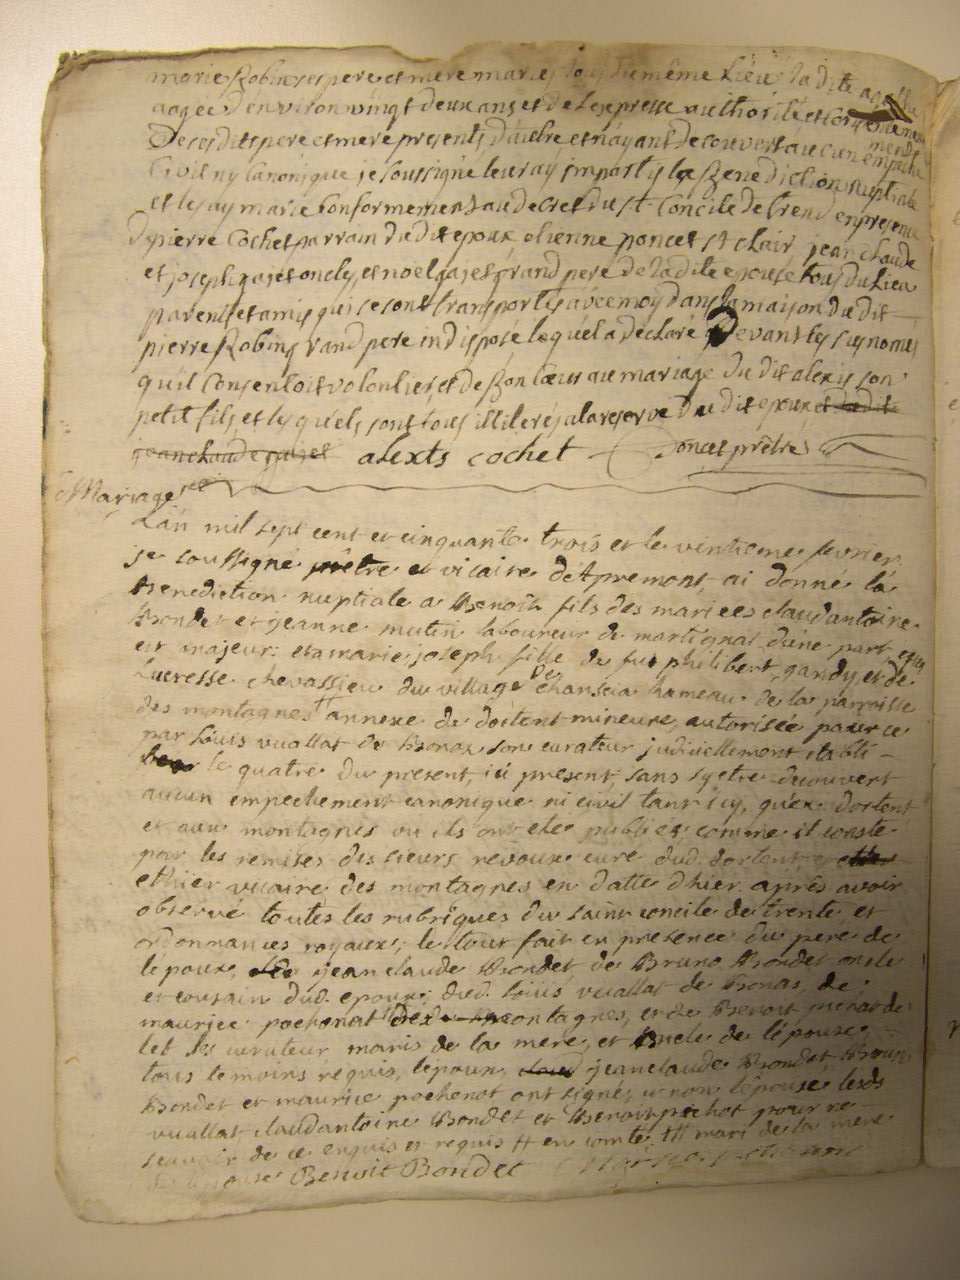 marie Robin ses pere et mere maries tous du même lieu la dite agathe
aagée d'environ vingt deux ans et de lexpresse authorité et consentement
De ses dits pere et mere presents d'autre et n'ayant decouvert aucun empeche
Civil ny Canonique je soussigné leur ay imparty la Benediction nuptiale
et les ay marie Conformement au decret du st Concile de trend en presence
de pierre Cochet parrain du dit epoux etienne poncet st clair jean claude
et joseph gaset oncles, et noel gaset grand pere de la dite epouse tous du Lieu
parents et amis qui se sont transportés avec moy dans la maison du dit
pierre Robin grand pere indisposé lequel a declaré Devant les susnomés
qu'il Consentoit volontiers et de Bon Coeur au mariage du dit alexis son
petit fils, et lesquels sont tous illiterés ala reserve du dit epoux et du dit
jean claude gaset alexts cochet Poncet prêtre
Mariage
L'an mil sept cent et cinquante trois et le vintieme fevrier
je soussigné prêtre et vicaire d'Apremont, ai donné la
Benediction nuptiale a Benoît fils des mariees claudantoine
Bondet et jeanne mutin laboureur de martignat d'une part
et majeur: et a marie joseph fille de fut philibert gandy, et de
Lucresse chevassieu du village de chanscia hameau de la parroisse
des montagnes annexe de dortent mineure, autorisée pour ce
par Louis vuallat de Bonaz son curateur judiciellement etabli
le quatre du present, ici present, sans s'y etre decouvert
aucun empechement canonique ni civil tant icy, qu'ex dortent
et aux montagnes ou ils ont ete publiés comme il conste
par les remises des sieurs revoux cure dud. dortent, et
ethier vicaire des montagnes en datte d'hier. après avoir
observé toutes les rubriques du saint concile de trente et
ordonnances royaux; le tout fait en presence du pere de
lépoux, jean claude Bondet de Bruno Bondet oncle
et cousin dud. epoux; dud. Loüis vuallat de Bonas, de
maurice pochonat des montagnes, et de Benoit
maris de la mere, et oncle de lépouse,
tous temoins requis, lépoux, jean claude Bondet, Bruno
Bondet et maurice pochonat ont signé, et non lépouse lesds
vuallat claudantoine Bondet et Benoit pour ne
scavoir de ce enquis et requis # en comte ## mari de la mere
Benoit Bondet